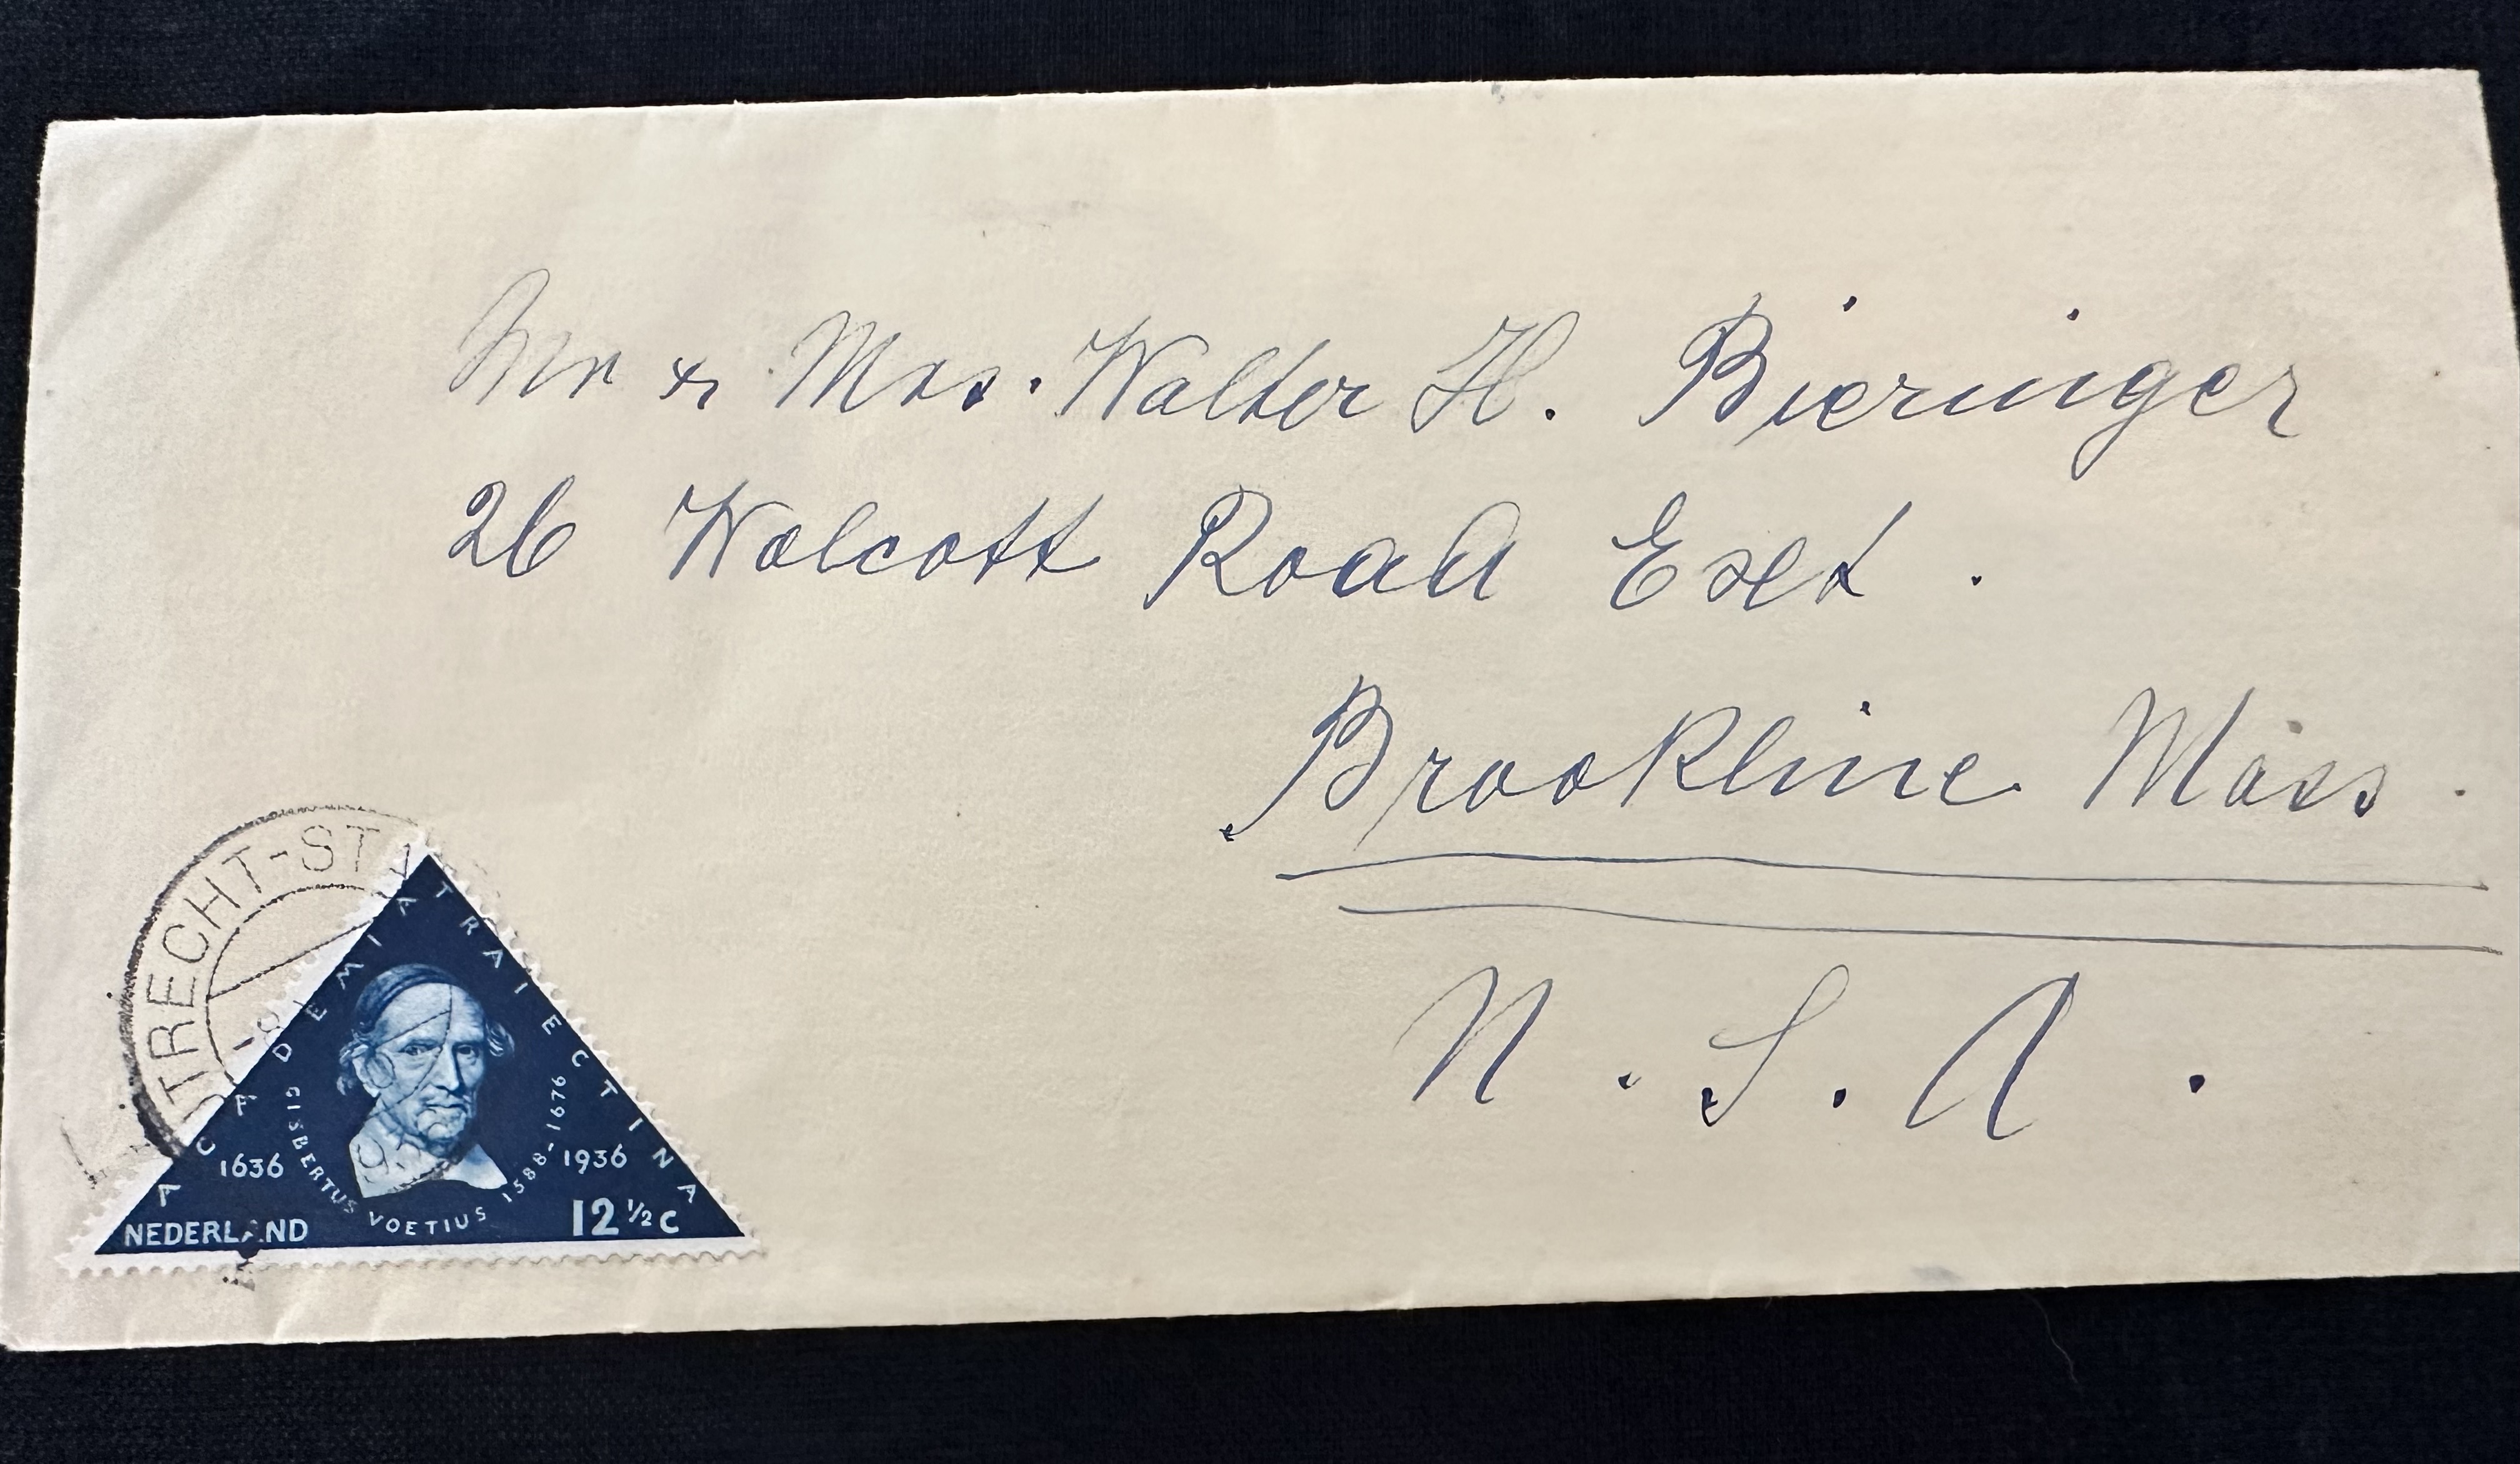 Mr & Mrs. Walter H. Bieringer
26 Wolcott Road Ext.
Brookline Mass.
U.S.A.
UTRECHT-ST
ACADEMIA TRAIECTINA
GISBERTUS VOETIUS 1588-1676
1636 1936
NEDERLAND 12½c